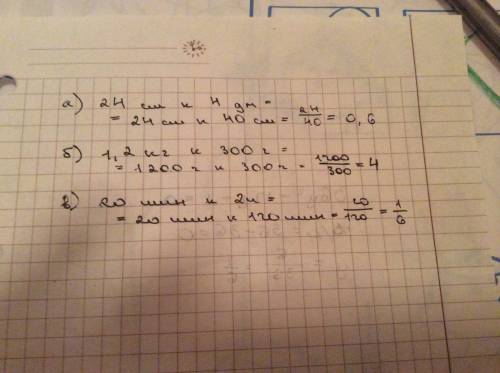 а) 24 см к 4 дм =
= 24 см к 40 см = 24/40 = 0,6
б) 1,2 кг к 300 г =
= 1200 г к 300 г = 1200/300 = 4
в) 20 мин к 2ч =
= 20 мин к 120 мин = 20/120 = 1/6